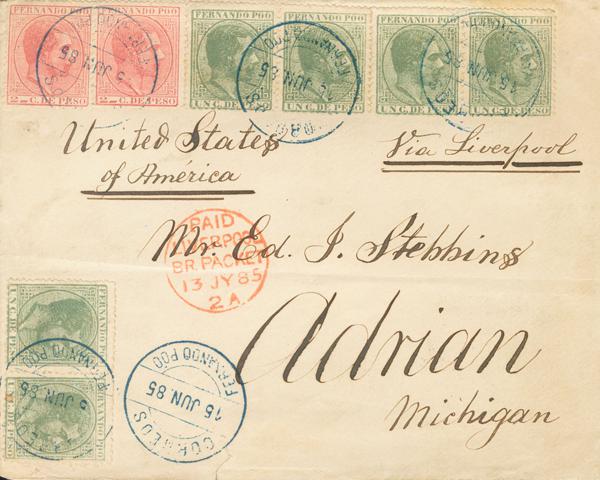 FERNANDO POO FERNANDO POO FERNANDO POO FERNANDO POO
2 C. DE PESO 2 C. DE PESO UN C. DE PESO UN C. DE PESO UN C. DE PESO
5 JUN 85
FERNANDO POO
15 JUN 85
United States
of América
Via Liverpool
PAID
LIVERPOOL
BR. PACKET
13 JY 85
2 A
Mr. Ed. J. Stebbins
Adrian
Michigan
FERNANDO POO
UN C. DE PESO
FERNANDO POO
UN C. DE PESO
FERNANDO POO
5 JUN 85
FERNANDO POO
15 JUN 85
CORREOS